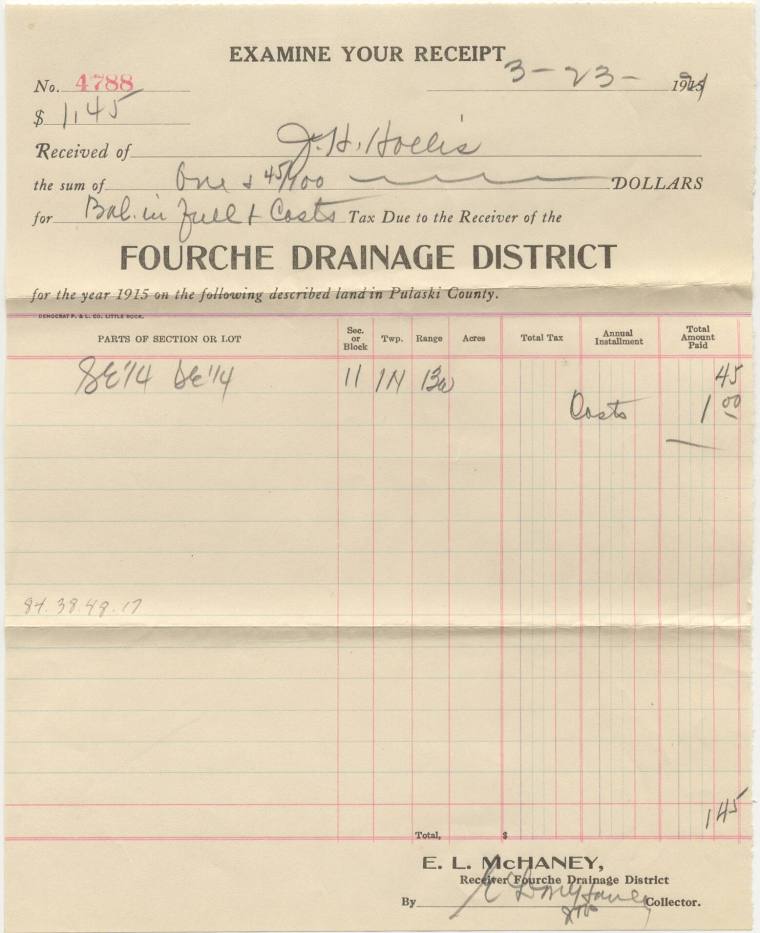 EXAMINE YOUR RECEIPT
3-23- 1921
No. 4788
$ 1.45
Received of J. H. Hollis
the sum of One & 45/100 DOLLARS
for Bal. in full & Costs Tax Due to the Receiver of the
FOURCHE DRAINAGE DISTRICT
for the year 1915 on the following described land in Pulaski County.
DEMOCRAT P. & L. CO. LITTLE ROCK.
PARTS OF SECTION OR LOT Sec. or Block Twp. Range Acres Total Tax Annual Installment Total Amount Paid
SE1/4 SE1/4 11 1N 13W 45
Costs 1 00
84.38.48.17
1 45
Total, $
E. L. McHANEY,
Receiver Fourche Drainage District
By Collector.